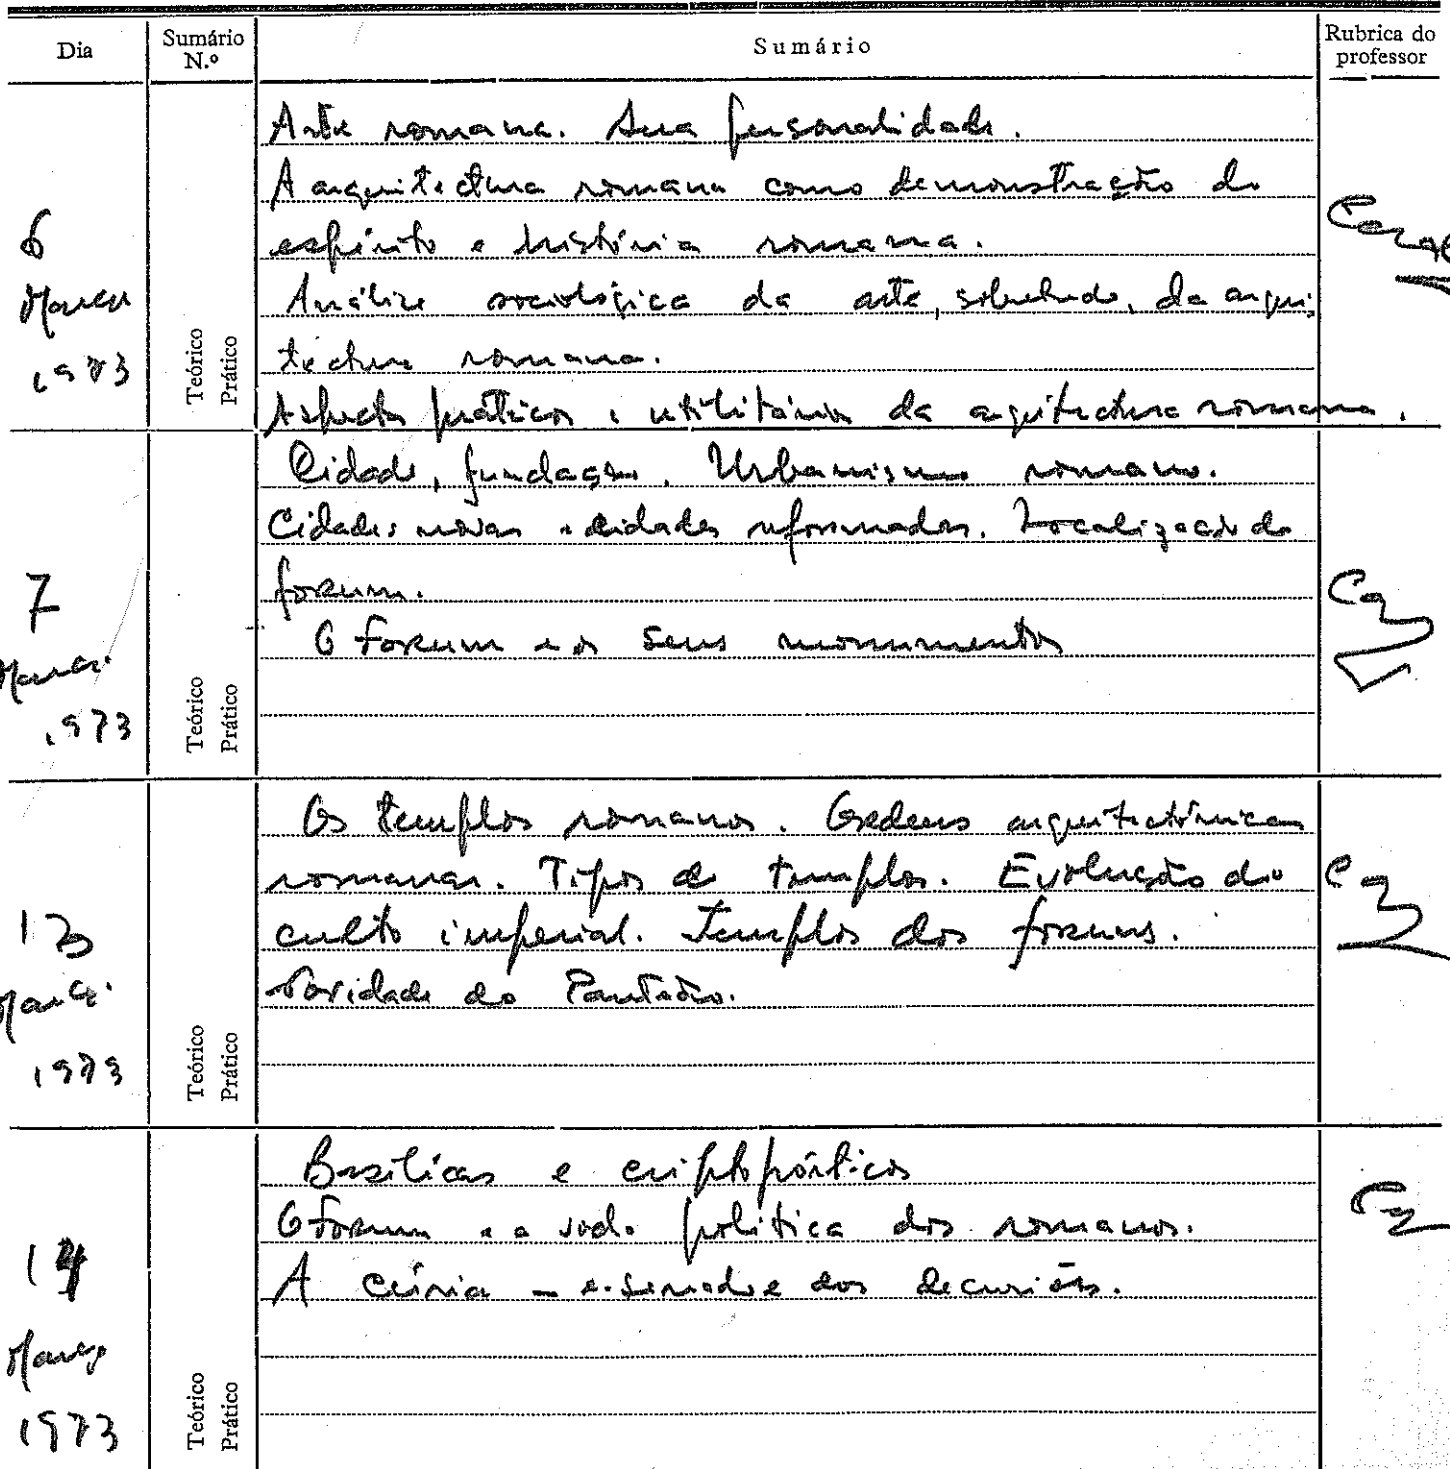 Dia
Sumário N.º
Sumário
Rubrica do professor
6
Março
1973
Teórico
Prático
Arte romana. Sua personalidade.
A arquitectura romana como demonstração do
espírito e história romana.
Análise sociológica da arte, sobretudo, da arqui
tectura romana.
Aspectos práticos e utilitários da arquitectura romana.
7
Março
1973
Teórico
Prático
Cidade, fundação. Urbanismo romano.
Cidades novas e cidades reformadas. Localização do
forum.
O Forum e os seus monumentos
13
Março
1973
Teórico
Prático
Os templos romanos. Ordens arquitectónicas
romanas. Tipos de templos. Evolução do
culto imperial. Templos dos foruns.
do Panteão.
14
Março
1973
Teórico
Prático
Basílicas e criptopórticos
O Forum e a vida política dos romanos.
A cúria - dos decuriões.